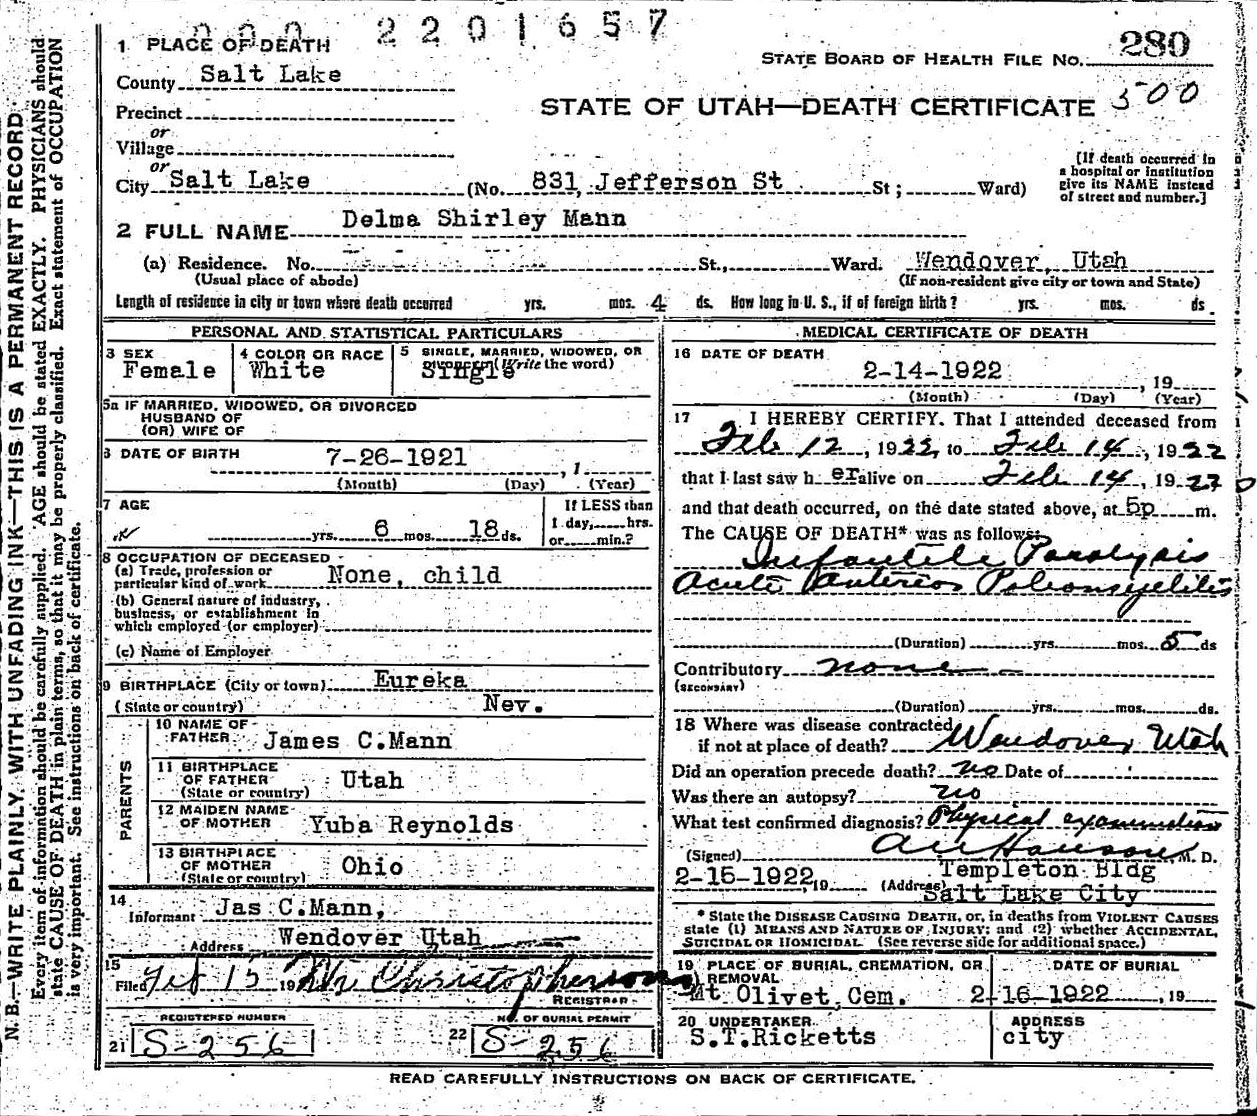 2201657
1 PLACE OF DEATH
County Salt Lake
STATE BOARD OF HEALTH FILE NO. 280
500
STATE OF UTAH—DEATH CERTIFICATE
Precinct
or
Village
or
City Salt Lake (No. 831, Jefferson St St; Ward)
[If death occurred in
a hospital or institution
give its NAME instead
of street and number.]
2 FULL NAME Delma Shirley Mann
(a) Residence. No. St., Ward. Wendover, Utah
(Usual place of abode) (If non-resident give city or town and State)
Length of residence in city or town where death occurred yrs. mos. 4 ds. How long in U. S., if of foreign birth? yrs. mos. ds
PERSONAL AND STATISTICAL PARTICULARS
3 SEX
Female
4 COLOR OR RACE
White
5 SINGLE, MARRIED, WIDOWED, OR
DIVORCED (Write the word)
Single
5a IF MARRIED, WIDOWED, OR DIVORCED
HUSBAND OF
(OR) WIFE OF
6 DATE OF BIRTH
7-26-1921 , 1
(Month) (Day) (Year)
7 AGE
yrs. 6 mos. 18 ds.
If LESS than
1 day, hrs.
or min.?
8 OCCUPATION OF DECEASED
(a) Trade, profession or
particular kind of work None, child
(b) General nature of industry,
business, or establishment in
which employed (or employer)
(c) Name of Employer
9 BIRTHPLACE (City or town) Eureka
(State or country) Nev.
PARENTS
10 NAME OF
FATHER James C.Mann
11 BIRTHPLACE
OF FATHER
(State or country) Utah
12 MAIDEN NAME
OF MOTHER Yuba Reynolds
13 BIRTHPLACE
OF MOTHER
(State or country) Ohio
14
Informant Jas C.Mann,
Address Wendover Utah
15
Filed Feb 15 19 Christopherson
REGISTRAR
REGISTERED NUMBER
21 S-256
NO. OF BURIAL PERMIT
22 S-256
MEDICAL CERTIFICATE OF DEATH
16 DATE OF DEATH
2-14-1922 , 19
(Month) (Day) (Year)
17 I HEREBY CERTIFY. That I attended deceased from
Feb 12, 1922, to Feb 14, 1922
that I last saw h er alive on Feb 14, 1922
and that death occurred, on the date stated above, at 5p m.
The CAUSE OF DEATH* was as follows:
Infantile Paralysis
Acute Anterior Poliomyelitis
(Duration) yrs. mos. 5 ds
Contributory none
(SECONDARY)
(Duration) yrs. mos. ds.
18 Where was disease contracted
if not at place of death? Wendover Utah
Did an operation precede death? no Date of
Was there an autopsy? no
What test confirmed diagnosis? Physical examination
(Signed) M. D.
2-15-1922, 19 (Address) Templeton Bldg
Salt Lake City
* State the DISEASE CAUSING DEATH, or, in deaths from VIOLENT CAUSES
state (1) MEANS AND NATURE OF INJURY; and (2) whether ACCIDENTAL,
SUICIDAL OR HOMICIDAL. (See reverse side for additional space.)
19 PLACE OF BURIAL, CREMATION, OR
REMOVAL
Mt. Olivet, Cem.
DATE OF BURIAL
2-16-1922 , 19
20 UNDERTAKER
S.T.Ricketts
ADDRESS
city
READ CAREFULLY INSTRUCTIONS ON BACK OF CERTIFICATE.
N. B.—WRITE PLAINLY, WITH UNFADING INK—THIS IS A PERMANENT RECORD.
Every item of information should be carefully supplied. AGE should be stated EXACTLY. PHYSICIANS should
state CAUSE OF DEATH in plain terms, so that it may be properly classified. Exact statement of OCCUPATION
is very important. See instructions on back of certificate.